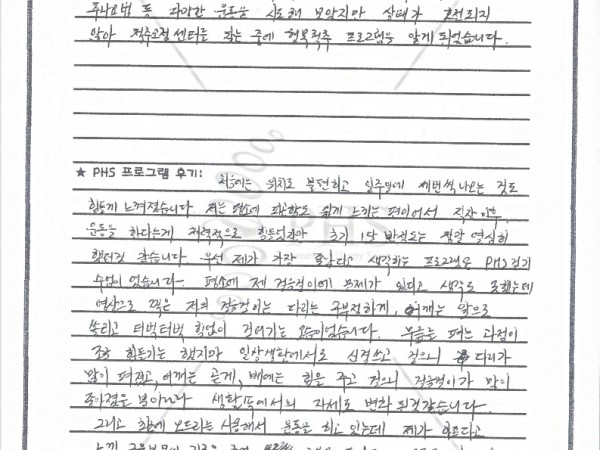 푸나요법 등 다양한 운동을 시도해 보았지만 상태가 호전되지
않아 척추교정센터를 찾는 중에 행복척추 프로그램을 알게 되었습니다.
PHS
★ PHS 프로그램 후기: 처음에는 위치도 불편하고 일주일에 세번씩 나오는 것도
힘들게 느껴졌습니다. 저는 평소에 피곤함도 쉽게 느끼는 편이어서 직장 이후
운동을 하다는게 체력적으로 힘들었지만 초기 1달 반정도는 정말 열심히
했던것 같습니다. 우선 제가 가장 좋았다고 생각하는 프로그램은 PHS걷기
수업이 었습니다. 평소에 제 걸음걸이에 문제가 있다고 생각도 못했는데
영상으로 찍은 저의 걸음걸이는 다리는 구부정하게, 어깨는 앞으로
쏠리고 터벅터벅 힘없이 걸어가는 모습이었습니다. 무릎을 펴는 과정이
조금 힘들기는 했지만 일상생활에서도 신경쓰고 걸으니 다리가
많이 펴졌고, 어깨는 곧게, 배에는 힘을 주고 걸으니 걸음걸이가 많이
좋아졌을 뿐아니라 생활속에서의 자세도 변화 된것같습니다.
그리고 함께 오프라는 사용해서 운동을 하고 있는데 제가 아프다고